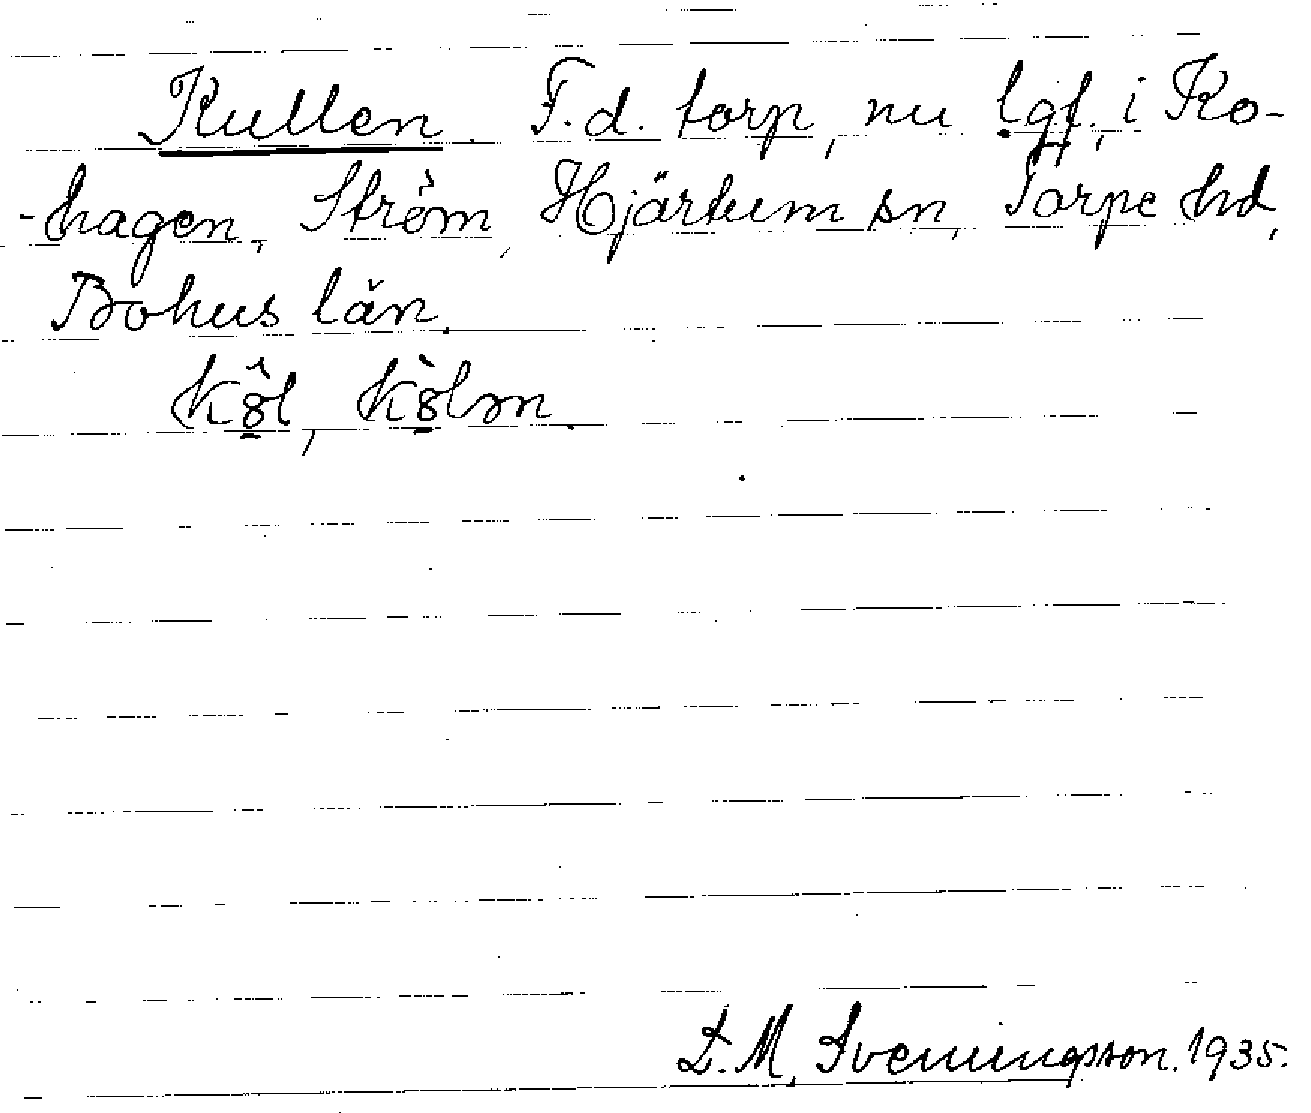 Kullen. F.d. torp, nu lgf. i Ko-
-hagen, Ström, Hjärtum sn, Torpe hd,
Bohus län.
D.M. Sveningsson. 1935.